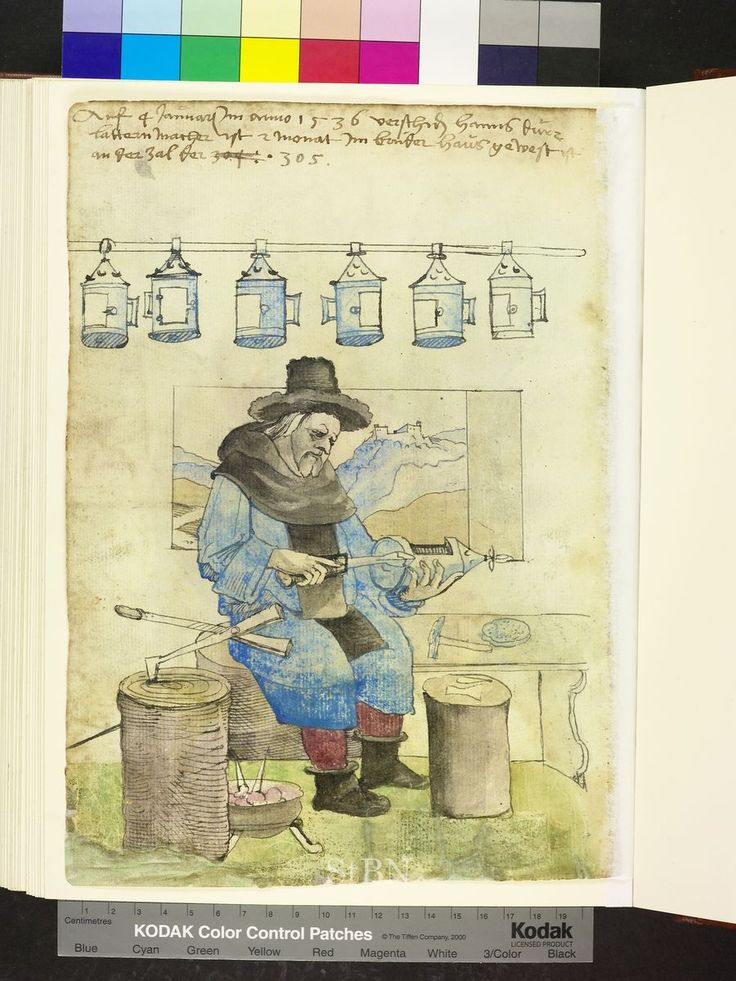 Auf 4 Januarj Im anno 1536 verschid hanns dürr
latternmacher ist 2 monat Im bruder haus gewest ist
an der zal der 304. 305.
StBN
Centimetres 1 2 3 4 5 6 7 8 9 10 11 12 13 14 15 16 17 18 19
KODAK Color Control Patches © The Tiffen Company, 2000 Kodak
LICENSED PRODUCT
Blue Cyan Green Yellow Red Magenta White 3/Color Black